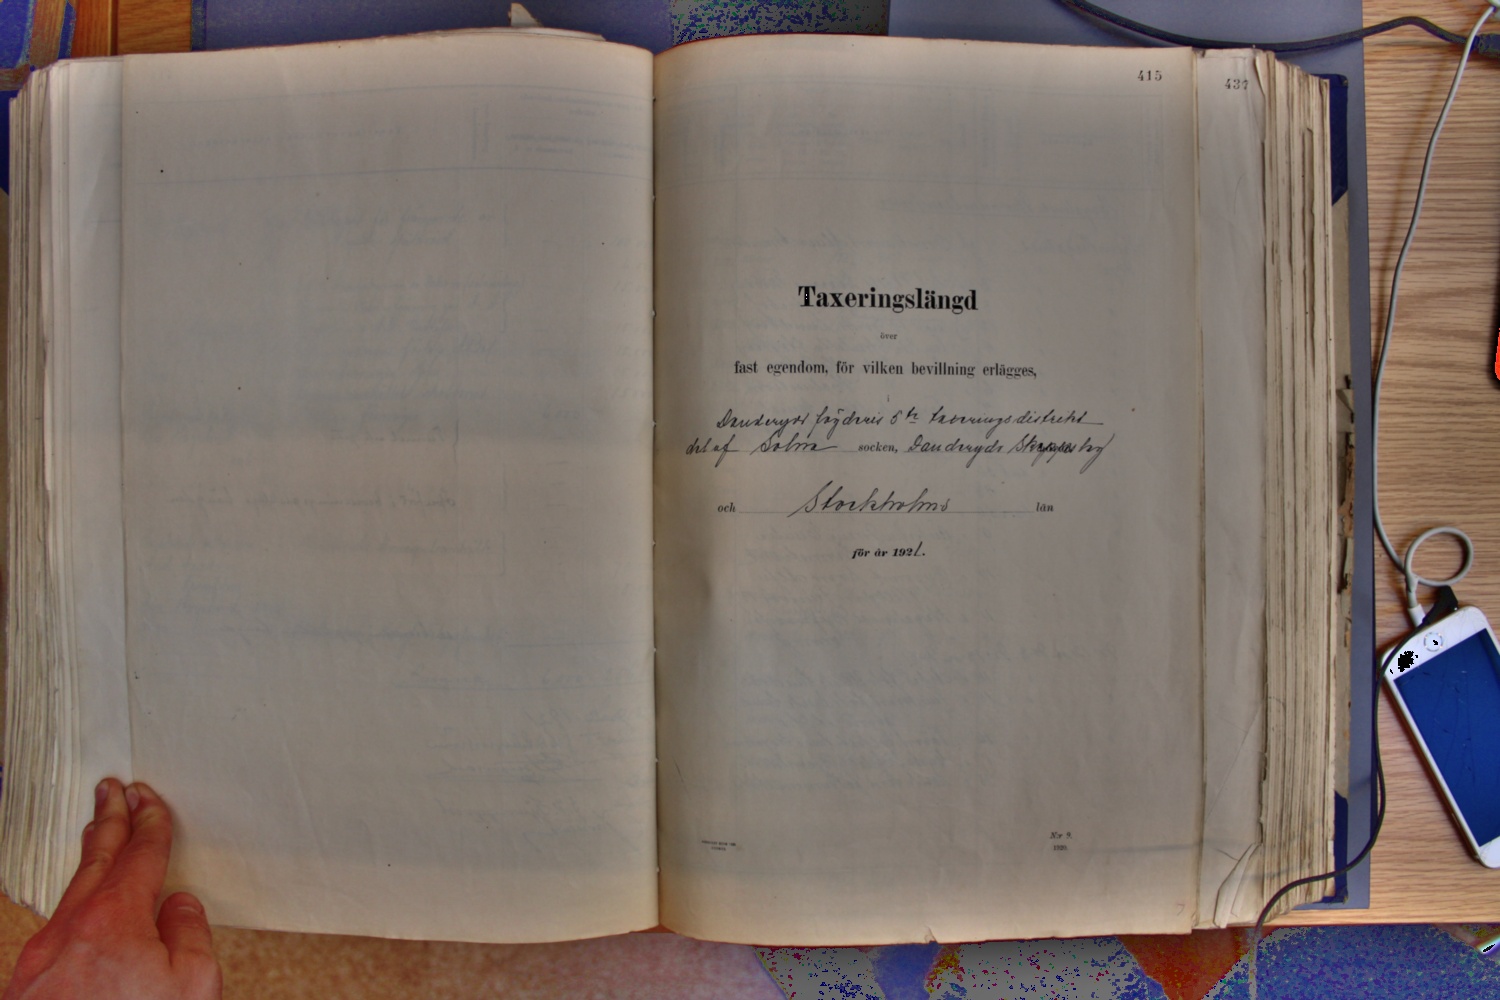 415
437
Taxeringslängd
över
fast egendom, för vilken bevillning erlägges,
Danderyds fögderis 5te taxeringsdistrikt
del af Solna socken, Danderyds Skeppslag
och Stockholms län
för år 1921.
N:r 9.
1920.